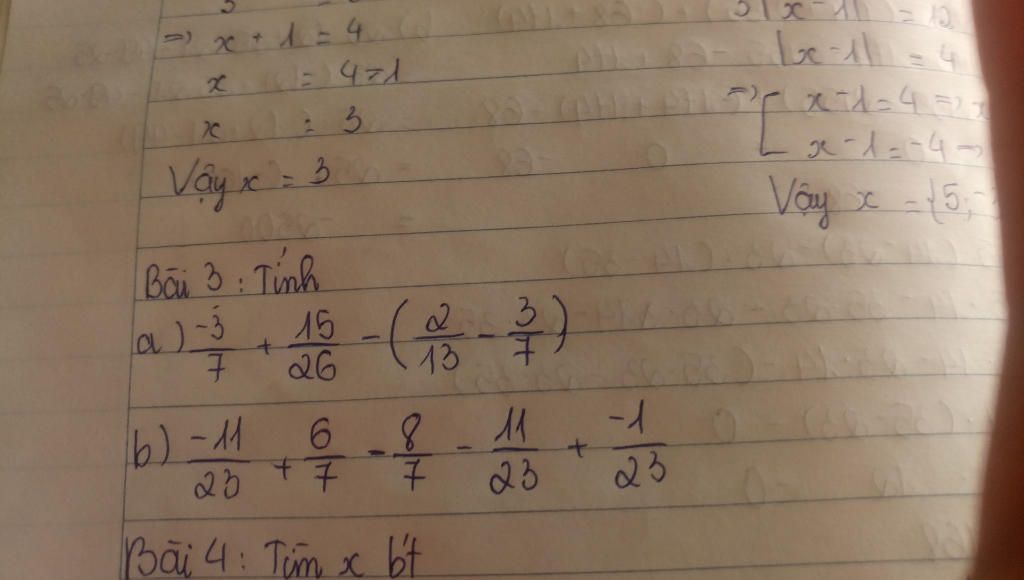 => x + 1 = 4
x = 4-1
x = 3
Vậy x = 3
|x-1| = 12
|x-1| = 4
=> [ x-1 = 4 =>
x-1 = -4
Vậy x = {5;
Bài 3 : Tính
a) -3/7 + 15/26 - (2/13 - 3/7)
b) -11/23 + 6/7 - 8/7 - 11/23 + -1/23
Bài 4 : Tìm x b't